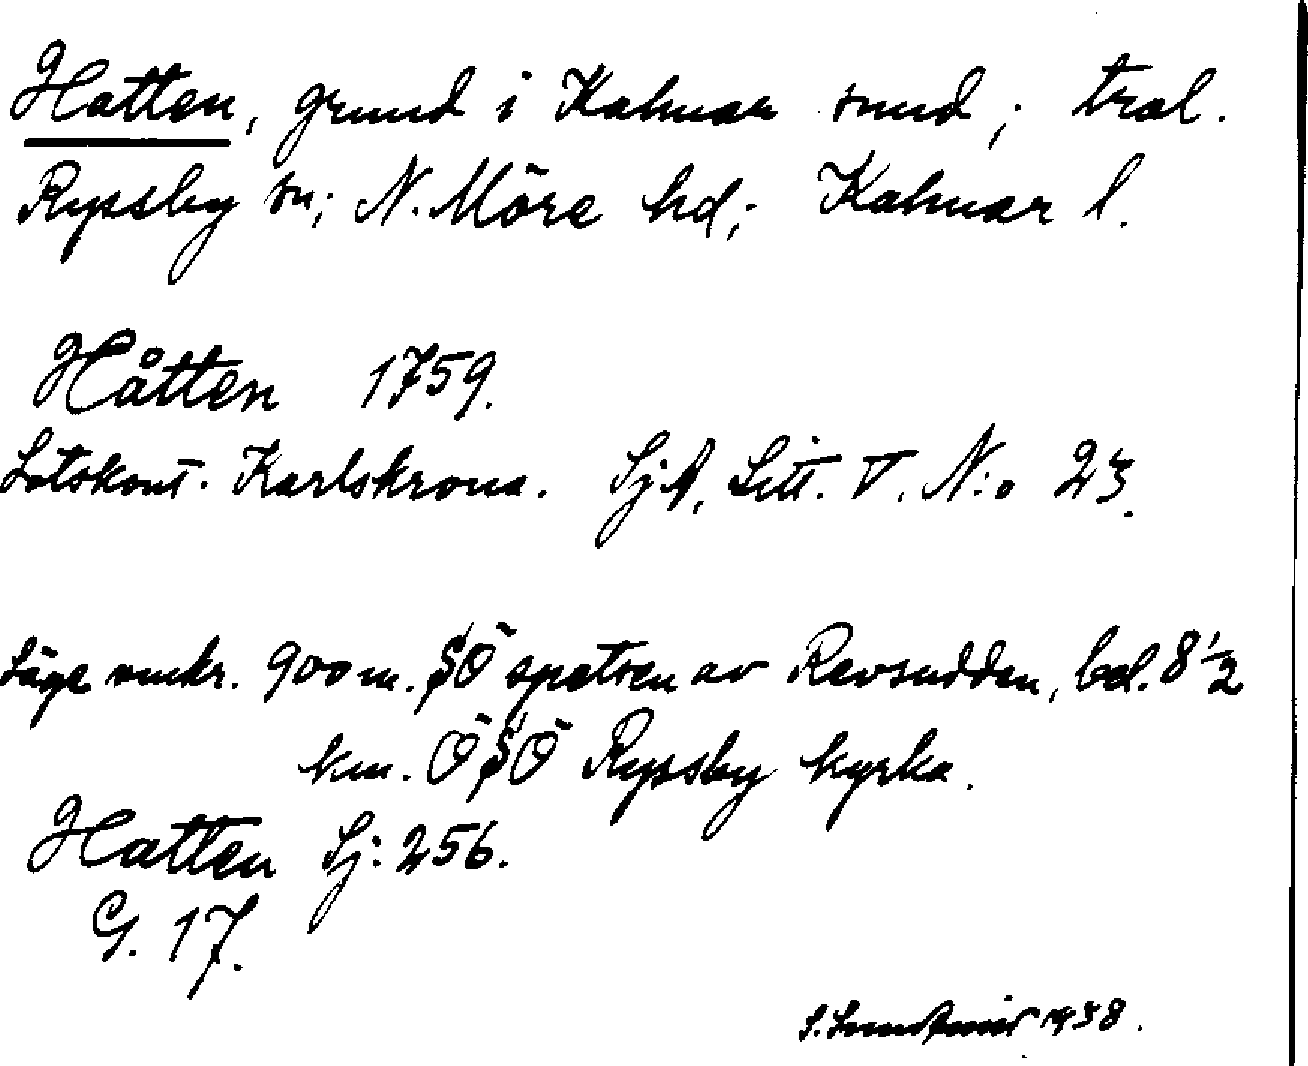 Hatten, grund i Kalmar sund; trol.
Ryssby sn; N. Möre hd; Kalmar l.
Håtten 1759.
Lotskont. Karlskrona. SjA, Litt. V. N:o 23.
Läge omkr. 900 m. SÖ spetsen av Revsudden, bel. 8 1/2
km. ÖSÖ Ryssby kyrka.
Hatten Sj: 256.
G. 17.
S. 1938.